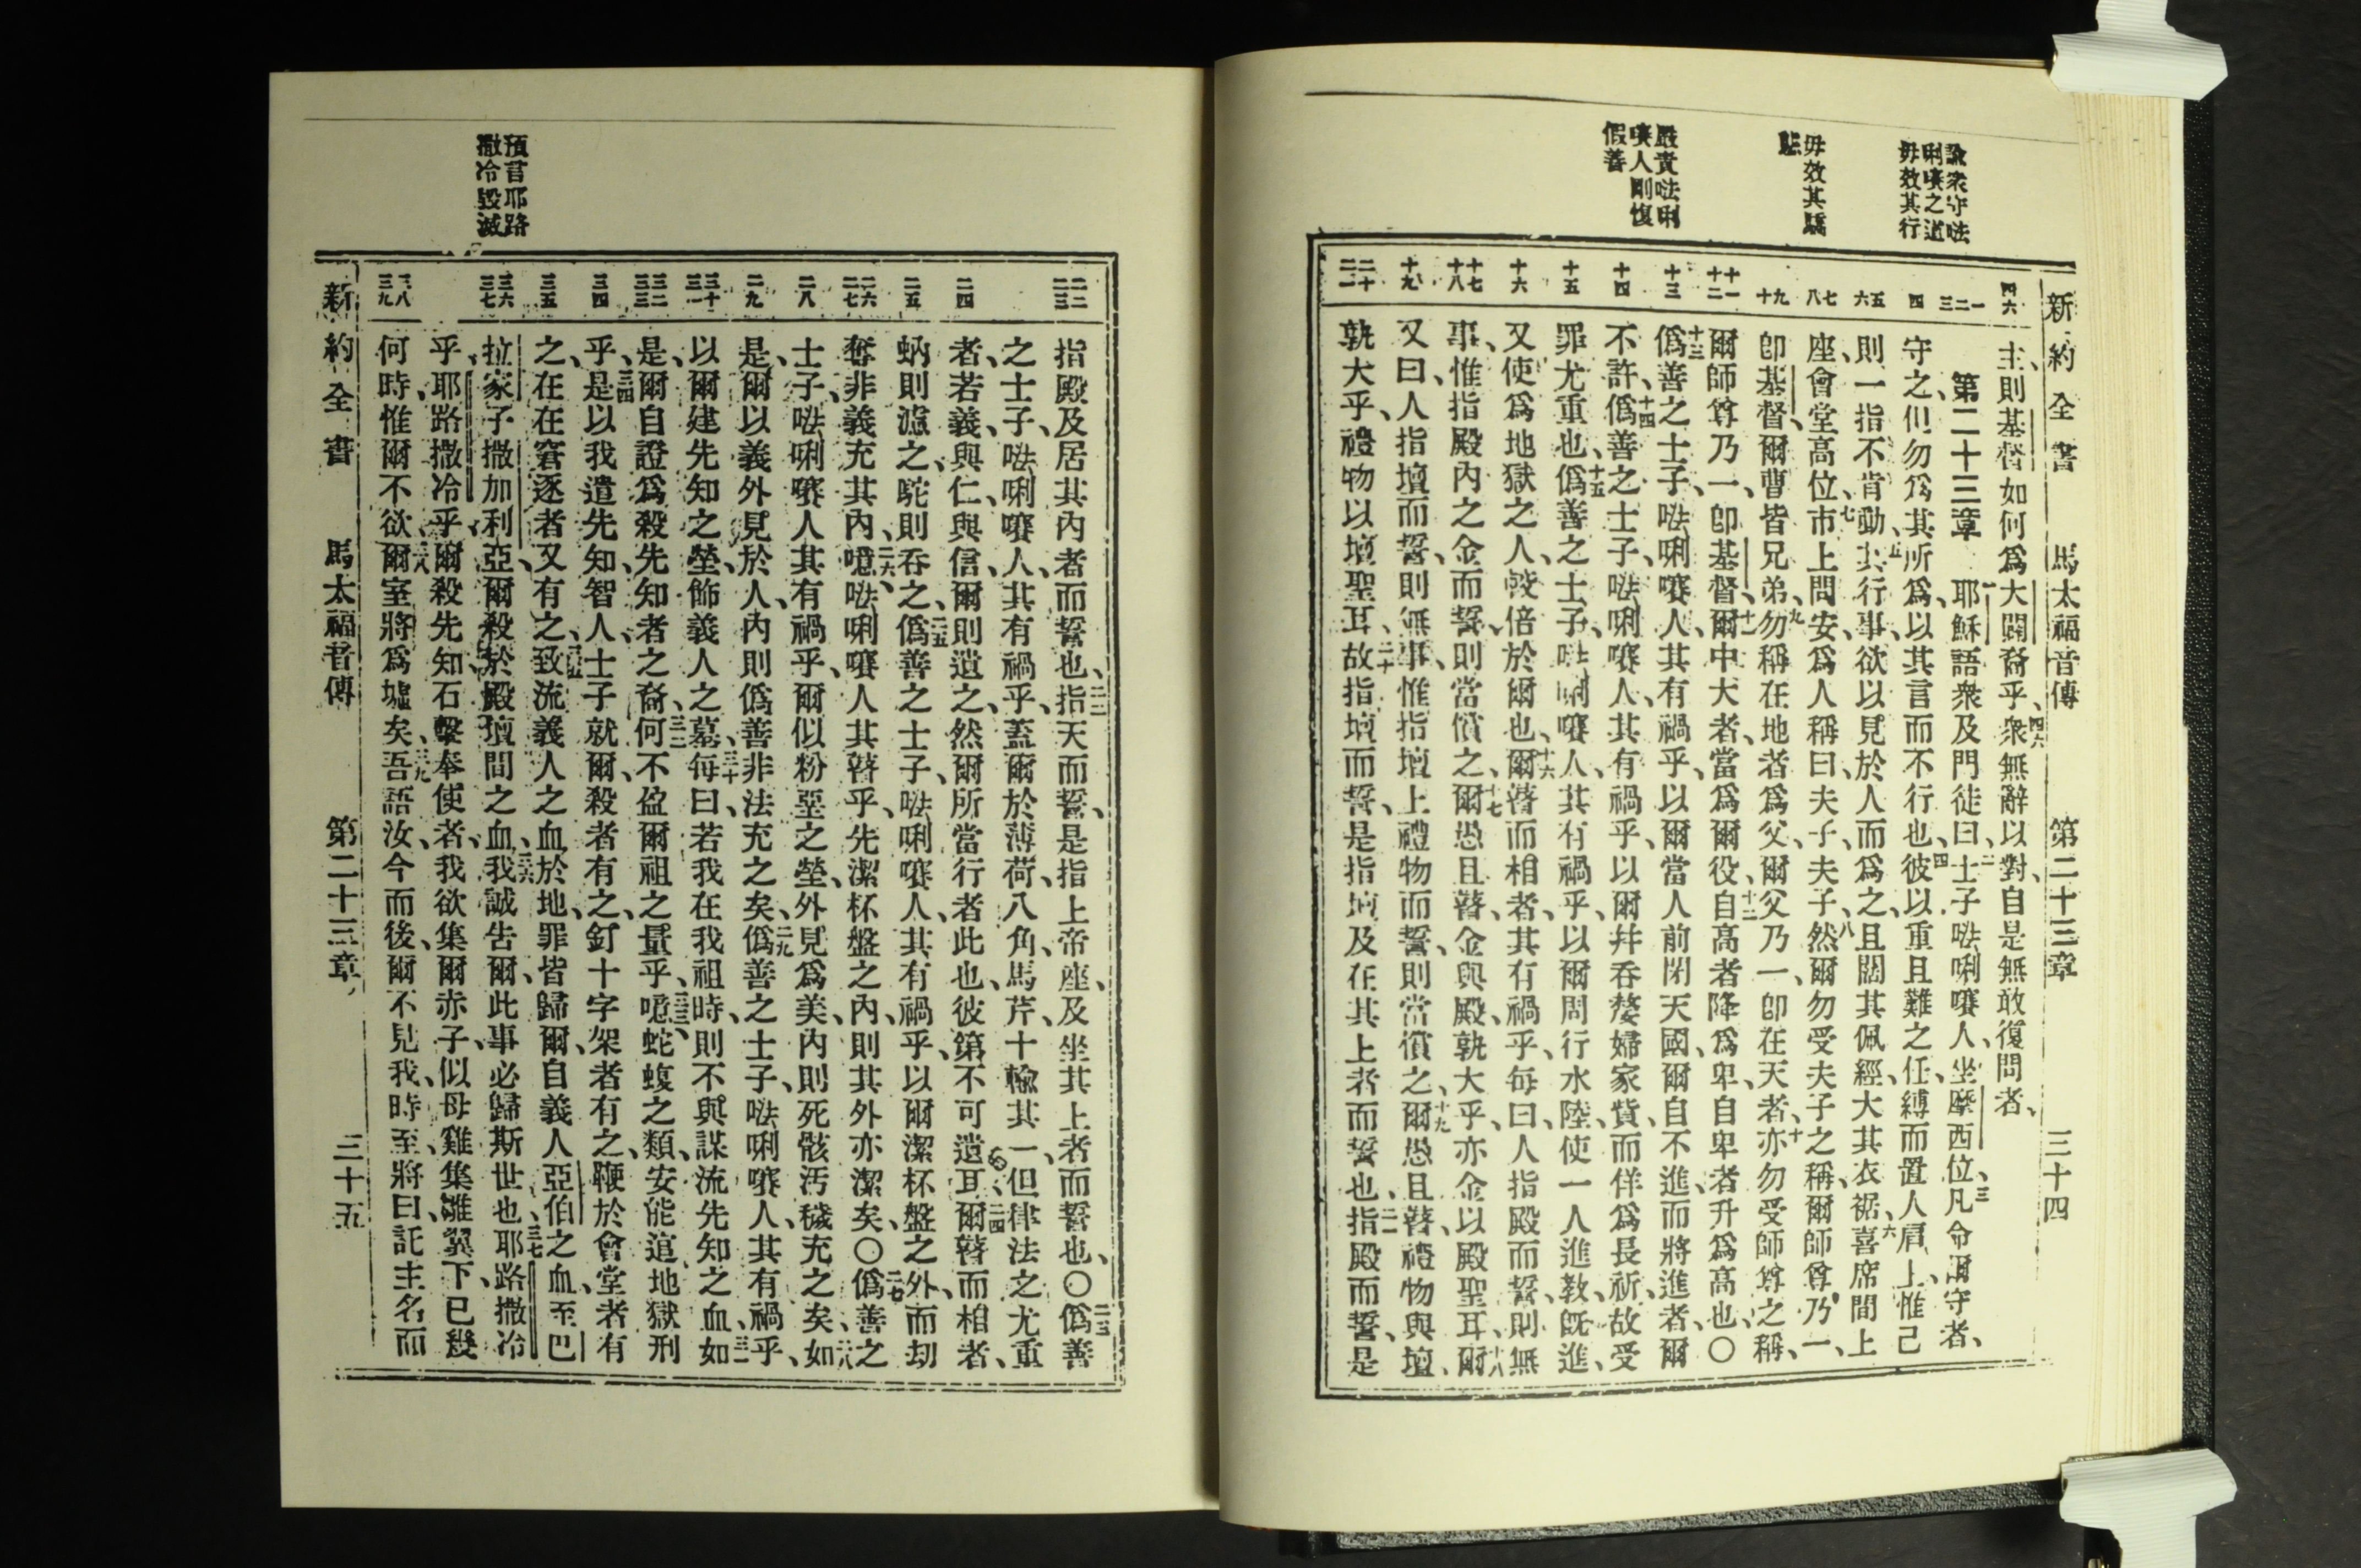 新約全書 馬太福音傳 第二十三章 三十四
諭衆守㗲
唎㘔之道
毋效其行
毋效其驕
嚴責㗲唎
㘔人剛愎
假善
四六
一
二
三
四
五
六
七
八
九
十
十一
十二
十三
十四
十五
十六
十七
十八
十九
二十
二一
主、則基督如何爲大闢裔乎、四六衆無辭以對、自是無敢復問者、
第二十三章 一耶穌語衆及門徒曰、二士子㗲唎㘔人、坐摩西位、三凡命爾守者、
守之、但勿爲其所爲、以其言而不行也、四彼以重且難之任、縛而置人肩上、惟己
則一指不肯動、五其行事、欲以見於人而爲之、且闊其佩經、大其衣裾、六喜席間上
座、會堂高位、七市上問安、爲人稱曰、夫子、夫子、八然爾勿受夫子之稱、爾師尊乃一、
卽基督、爾曹皆兄弟、九勿稱在地者爲父、爾父乃一、卽在天者、十亦勿受師尊之稱、
爾師尊乃一、卽基督、十一爾中大者、當爲爾役、十二自高者降爲卑、自卑者升爲高也、〇
十三僞善之士子、㗲唎㘔人、其有禍乎、以爾當人前閉天國、爾自不進、而將進者、爾
不許、十四僞善之士子、㗲唎㘔人、其有禍乎、以爾幷吞嫠婦家貲、而佯爲長祈、故受
罪尤重也、十五僞善之士子、㗲唎㘔人、其有禍乎、以爾周行水陸、使一人進教、旣進、
又使爲地獄之人、較倍於爾也、十六爾瞽而相者、其有禍乎、每曰、人指殿而誓、則無
事、惟指殿內之金而誓、則當償之、十七爾愚且瞽、金與殿、孰大乎、亦金以殿聖耳、十八爾
又曰、人指壇而誓、則無事、惟指壇上禮物而誓、則當償之、十九爾愚且瞽、禮物與壇、
孰大乎、禮物以壇聖耳、二十故指壇而誓、是指壇、及在其上者而誓也、二一指殿而誓、是
二二
二三
二四
二五
二六
二七
二八
二九
三十
三一
三二
三三
三四
三五
三六
三七
三八
三九
指殿及居其內者而誓也、二二指天而誓、是指上帝座、及坐其上者而誓也、〇二三僞善
之士子、㗲唎㘔人、其有禍乎、蓋爾於薄荷、八角、馬芹、十輸其一、但律法之尤重
者、若義、與仁、與信、爾則遺之、然爾所當行者此也、彼第不可遺耳、二四爾瞽而相者、
蚋則濾之、駝則吞之、二五僞善之士子、㗲唎㘔人、其有禍乎、以爾潔杯盤之外、而刧
奪非義充其內、二六噫、㗲唎㘔人其瞽乎、先潔杯盤之內、則其外亦潔矣、〇二七僞善之
士子、㗲唎㘔人其有禍乎、爾似粉堊之塋、外見爲美、內則死骸汚穢充之矣、二八如
是、爾以義外見於人、內則僞善非法充之矣、二九僞善之士子、㗲唎㘔人、其有禍乎、
以爾建先知之塋、飾義人之墓、三十每曰、若我在我祖時、則不與謀流先知之血、三一如
是、爾自證爲殺先知者之裔、三二何不盈爾祖之量乎、三三噫、蛇蝮之類、安能逭地獄刑
乎、三四是以我遣先知、智人、士子就爾、殺者有之、釘十字架者有之、鞭於會堂者有
之、在在窘逐者又有之、三五致流義人之血於地、罪皆歸爾、自義人亞伯之血、至巴
拉家子撒加利亞、爾殺於殿壇間之血、三六我誠告爾、此事必歸斯世也、三七耶路撒冷
乎、耶路撒冷乎、爾殺先知、石擊奉使者、我欲集爾赤子、似母雞集雛翼下、已幾
何時、惟爾不欲、三八爾室將爲墟矣、三九吾語汝、今而後、爾不見我、時至、將曰、託主名而
預言耶路
撒冷毀滅
新約全書 馬太福音傳 第二十三章 三十五